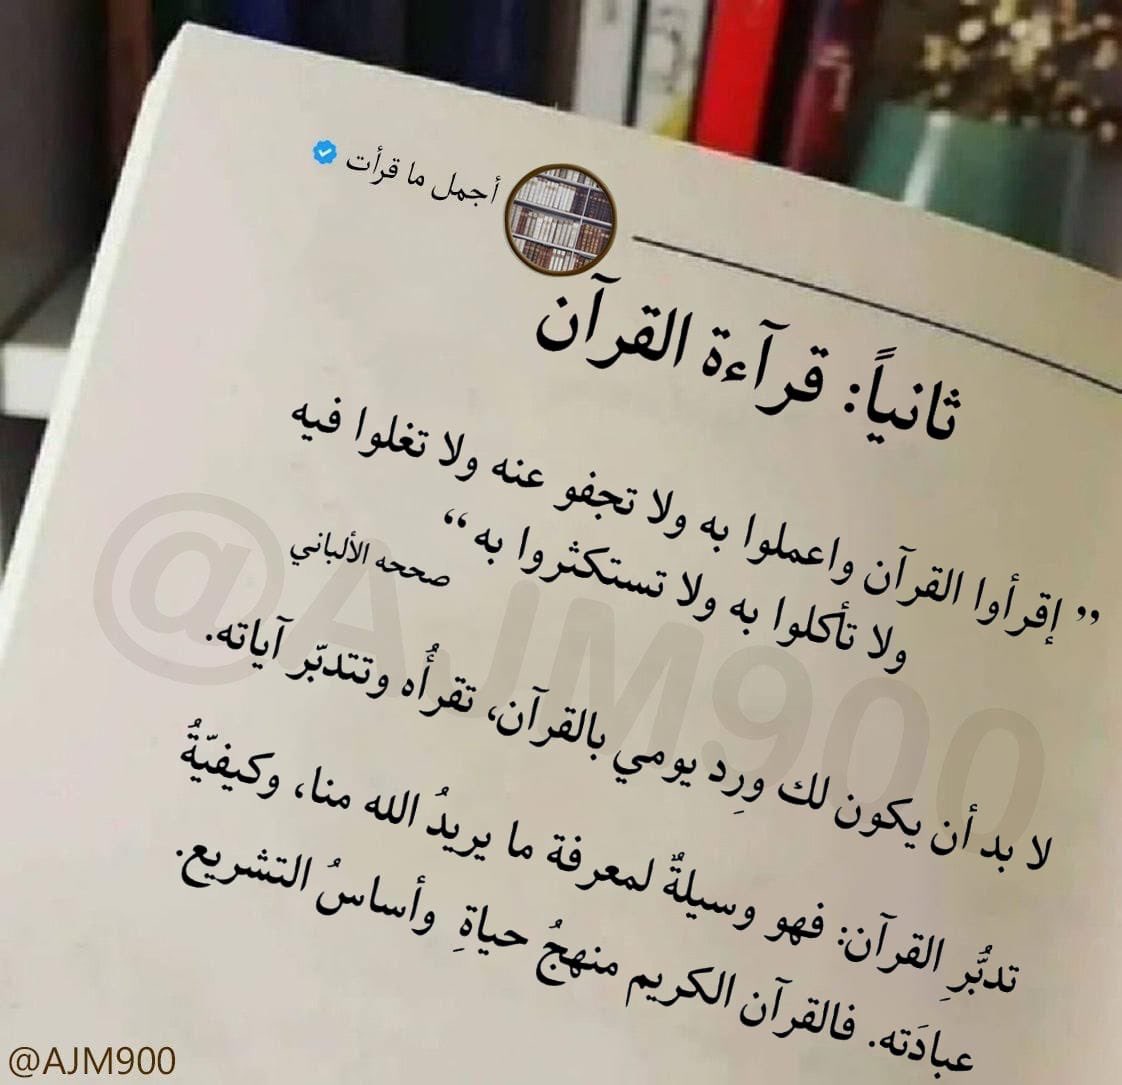 أجمل ما قرأت
ثانياً: قرآءة القرآن
”إقرأوا القرآن واعملوا به ولا تجفو عنه ولا تغلوا فيه
ولا تأكلوا به ولا تستكثروا به“
صححه الألباني
لا بد أن يكون لك وِرِد يومي بالقرآن، تقرأُه وتتدبّر آياته.
تدبُّرِ القرآن: فهو وسيلةٌ لمعرفة ما يريدُ الله منا، وكيفيّةُ
عبادَته. فالقرآن الكريم منهجُ حياةِ وأساسُ التشريع.
@AJM900
@AJM900